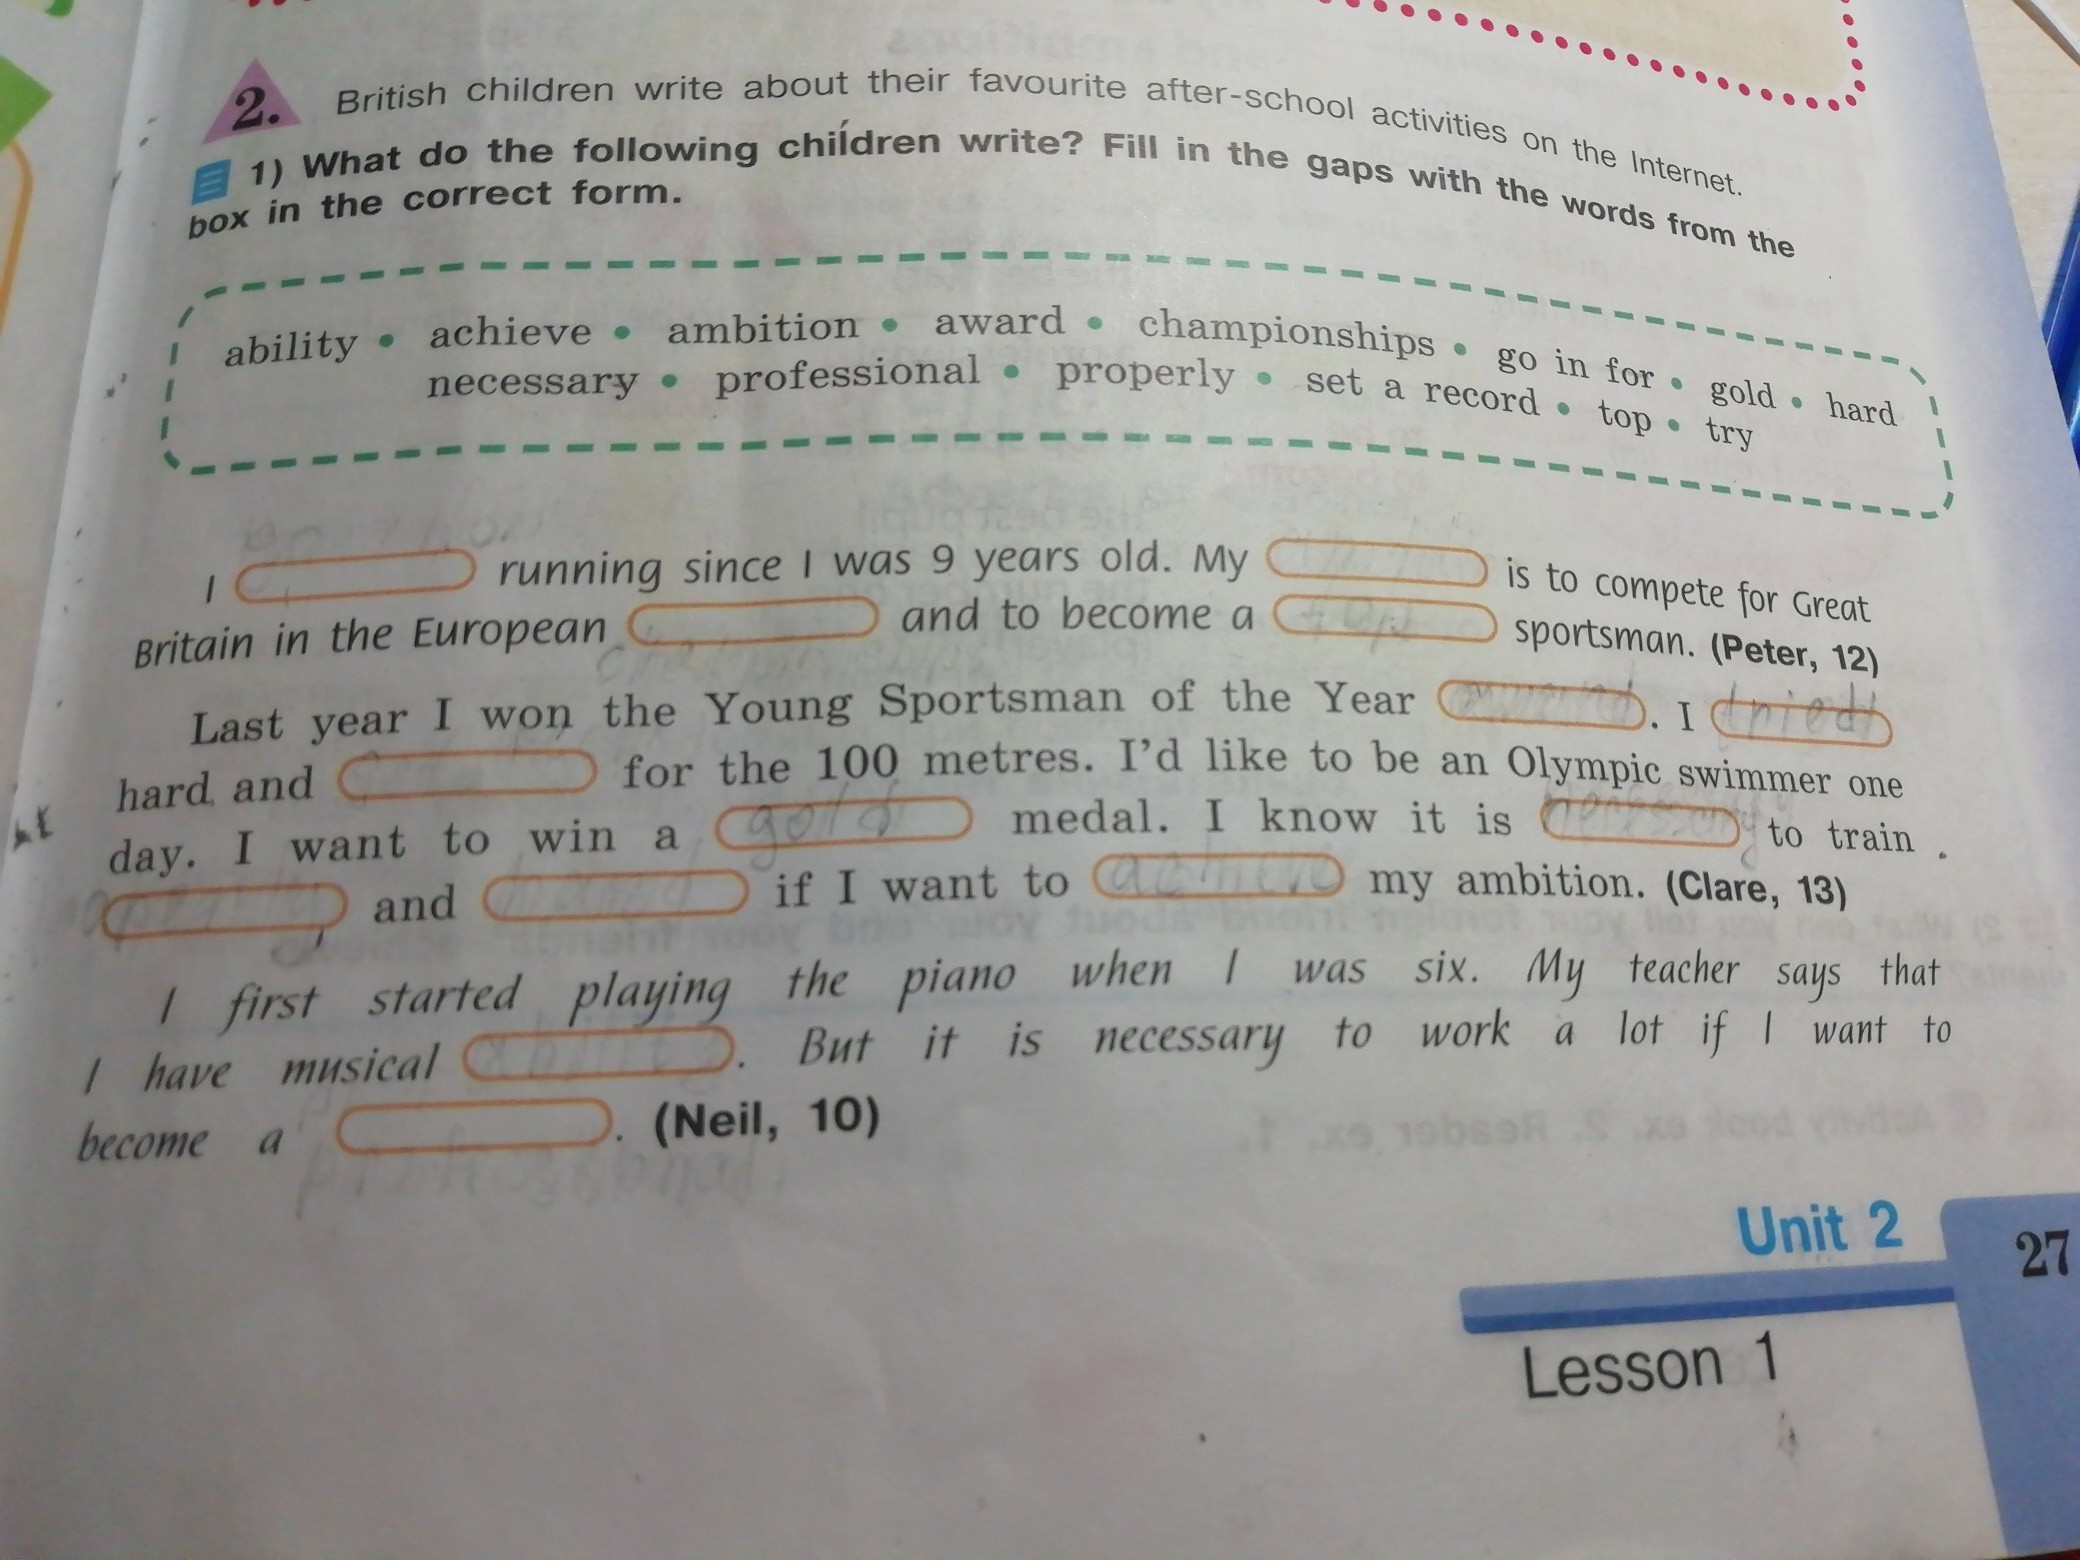 2. British children write about their favourite after-school activities on the Internet.
1) What do the following children write? Fill in the gaps with the words from the
box in the correct form.
ability • achieve • ambition • award • championships • go in for • gold • hard
necessary • professional • properly • set a record • top • try
I running since I was 9 years old. My is to compete for Great
Britain in the European and to become a top sportsman. (Peter, 12)
championships
Last year I won the Young Sportsman of the Year award. I tried
hard and for the 100 metres. I'd like to be an Olympic swimmer one
day. I want to win a gold medal. I know it is necessary to train
and hard if I want to achieve my ambition. (Clare, 13)
I first started playing the piano when I was six. My teacher says that
I have musical ability. But it is necessary to work a lot if I want to
become a . (Neil, 10)
Unit 2
27
Lesson 1